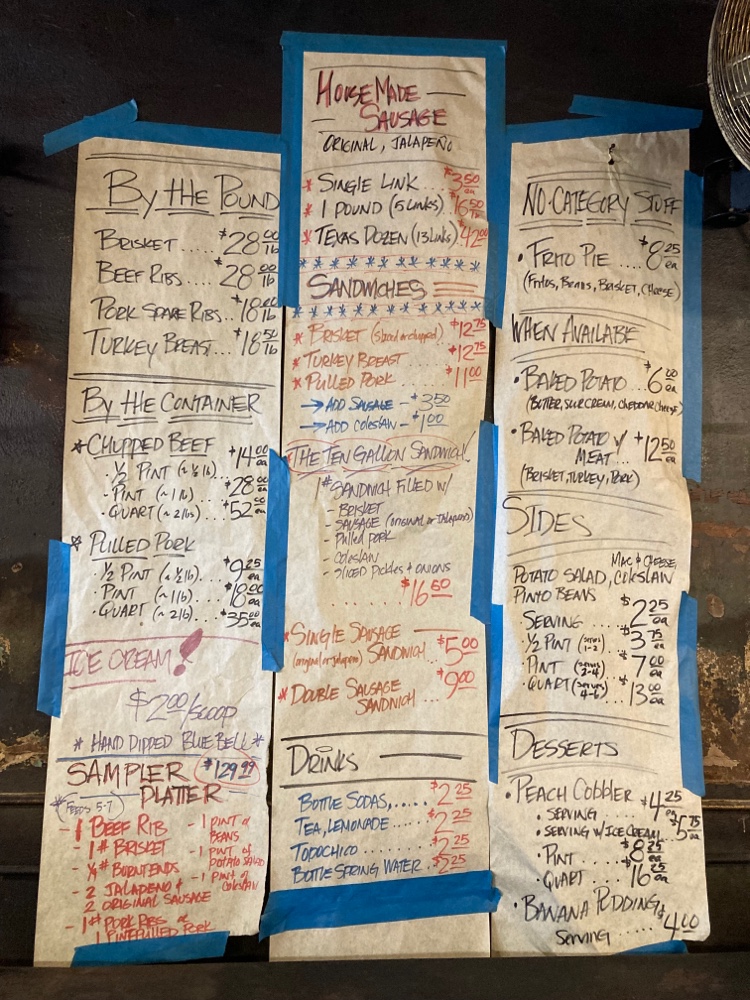 By the Pound
Brisket .... $28.00 lb
Beef Ribs .. $28.00 lb
Pork Spare Ribs.. $18.00 lb
Turkey Breast... $18.50 lb
By the Container
* Chopped Beef
· 1/2 Pint (~ 1/2 lb) $14.00 ea
- Pint (~ 1 lb) .... $28.00 ea
- Quart (~ 2 lb) ... $52.00 ea
* Pulled Pork
· 1/2 Pint (~ 1/2 lb).... $9.25 ea
· Pint (~ 1 lb) .... $18.00 ea
· Quart (~ 2 lb) ... $35.00 ea
Ice Cream!
$2.00/scoop
* Hand Dipped Blue Bell *
Sampler $129.99
Platter
* Feeds 5-7
- 1 Beef Rib
- 1# Brisket
- 1/4# Burntends
- 2 Jalapeno &
2 Original Sausage
- 1# Pork Ribs or
1 Pint Pulled Pork
- 1 Pint of
Beans
- 1 Pint of
Potato Salad
- 1 Pint of
Coleslaw
House Made
Sausage
Original, Jalapeño
* Single Link ... $3.50 ea
* 1 Pound (5 Links) $16.50
* Texas Dozen (13 Links) $42.00
Sandwiches
* Brisket (sliced or chopped) $12.75
* Turkey Breast ... $12.75
* Pulled Pork .... $11.00
→ Add Sausage - $3.50
→ Add Coleslaw - $1.00
The Ten Gallon Sandwich!
1# Sandwich Filled w/
- Brisket
- Sausage (original or Jalapeno)
- Pulled Pork
- Coleslaw
- Sliced Pickles & Onions
....... $16.50
* Single Sausage
(original or jalapeno) Sandwich ... $5.00
* Double Sausage
Sandwich .... $9.00
Drinks
Bottle Sodas,..... $2.25
Tea, Lemonade .... $2.25
Topochico ...... $2.25
Bottle Spring Water . $2.25
No-Category Stuff
· Frito Pie .... $8.25 ea
(Fritos, Beans, Brisket, Cheese)
When Available
· Baked Potato ... $6.00 ea
(Butter, Sur Cream, Cheddar Cheese)
· Baked Potato w/
Meat ... $12.50 ea
(Brisket, Turkey, Pork)
Sides
Mac & Cheese,
Potato Salad, Coleslaw
Pinto Beans
Serving ..... $2.25 ea
1/2 Pint (serves 1-2) . $3.75 ea
· Pint (serves 2-4) ... $7.00 ea
· Quart (serves 4-6) . $13.00 ea
Desserts
· Peach Cobbler
· Serving .... $4.25 ea
· Serving w/ Ice Cream .. $5.75 ea
· Pint ..... $8.25 ea
· Quart .... $16.25 ea
· Banana Pudding
Serving .... $4.00